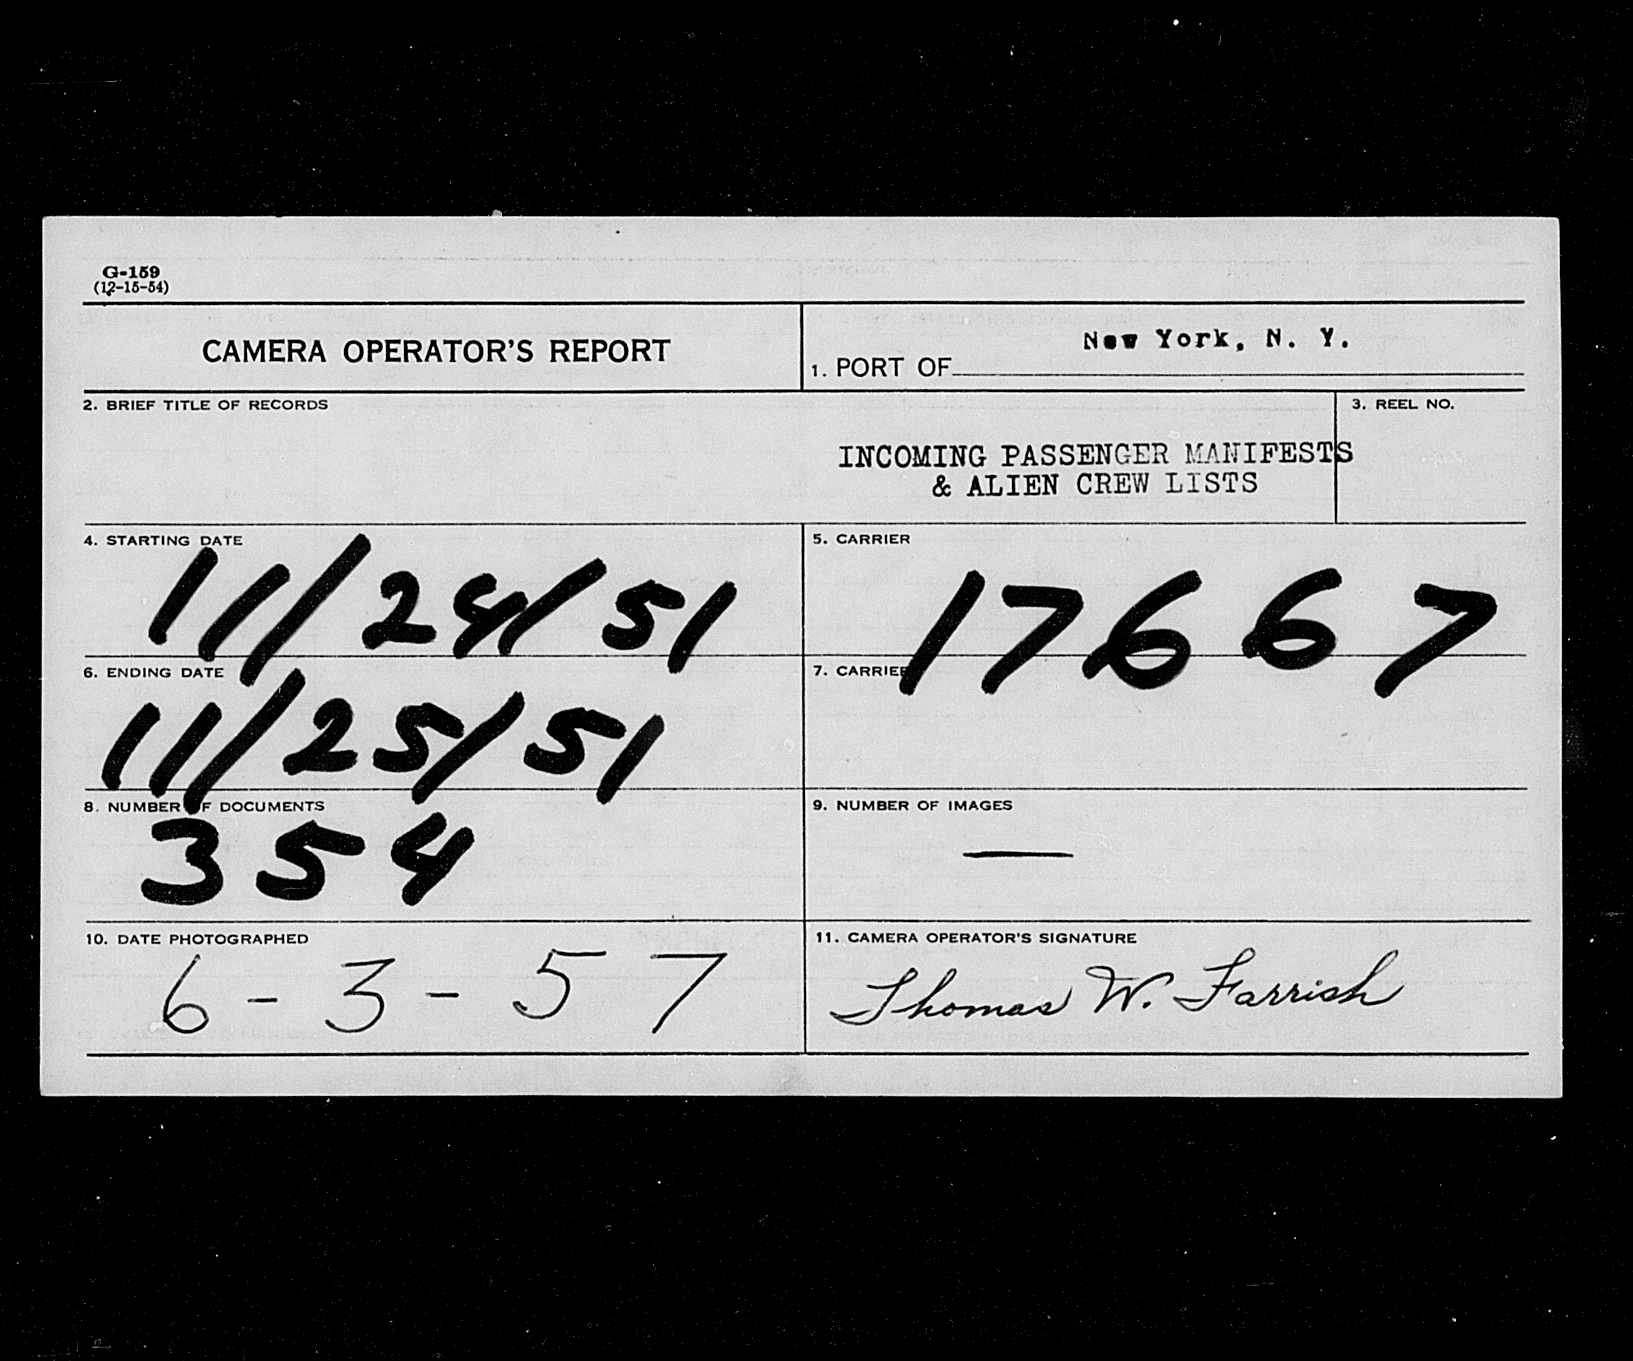 G-159
(12-15-54)
CAMERA OPERATOR'S REPORT
New York, N. Y.
1. PORT OF
2. BRIEF TITLE OF RECORDS
3. REEL NO.
INCOMING PASSENGER MANIFESTS
& ALIEN CREW LISTS
4. STARTING DATE
11/24/51
5. CARRIER
17667
6. ENDING DATE
11/25/51
7. CARRIER
8. NUMBER OF DOCUMENTS
354
9. NUMBER OF IMAGES
—
10. DATE PHOTOGRAPHED
6-3-57
11. CAMERA OPERATOR'S SIGNATURE
Thomas W. Farrish